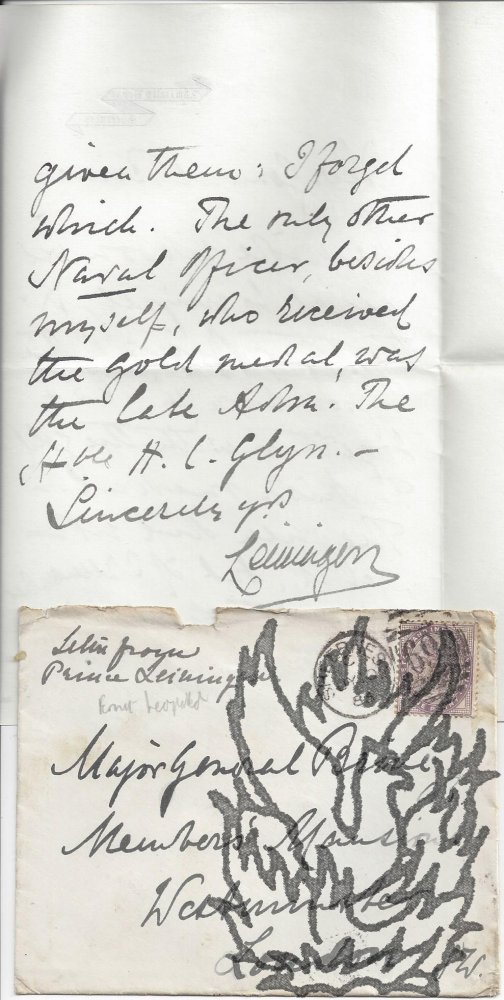 given them; I forget
which. The only other
Naval Officer, besides
myself, who received
the gold medal, was
the late Adm.l The
Hble H. C. Glyn. —
Sincerely yrs
Leiningen
Letter from
Prince Leiningen
Ernst Leopold
SHEERNESS
86
Major General
Members' Mansions
Westminster
London SW.